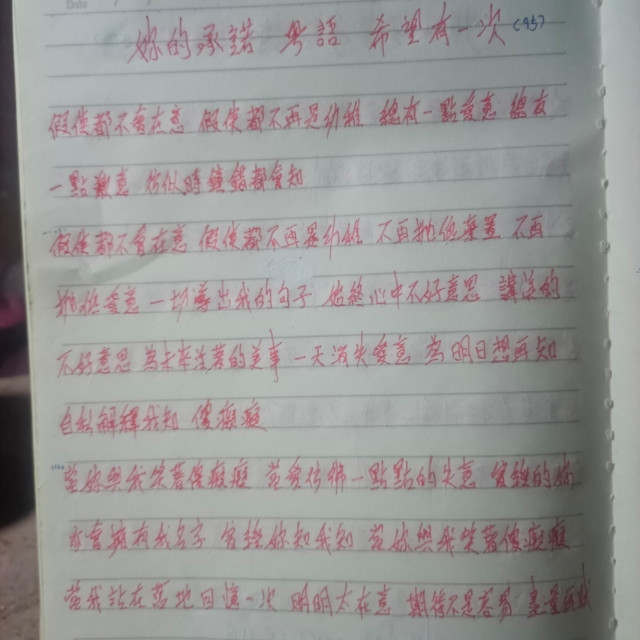 Date
妳的承諾 粵語 希望有一次 (95)
假使都不會在意 假使都不再是幼稚 總有一點愛意 總有
一點歉意 你似時鐘錯都會知
假使都不會在意 假使都不再是幼稚 不再抛低棄置 不再
抛低愛意 一切導出我的句子 始終心中不好意思 講法的
不好意思 為未來活著的美事 一天消失愛意 當明日想再知
自我解釋我知 傻癡癡
當你與我笑著傻癡癡 當愛彷彿一點點的失意 寫錯的
擁有我名字 你知我知 當你與我笑著傻癡癡
當我站在落地 一次 明明太在意 期待不是容易